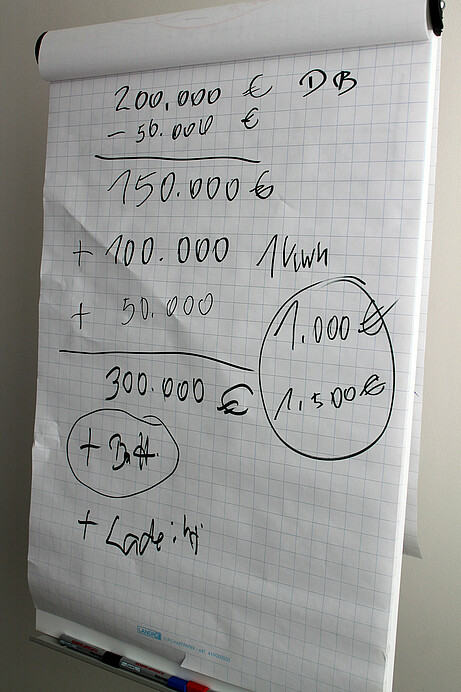 200.000 € DB
- 50.000 €
150.000 €
+ 100.000 1 kWh
+ 50.000
1.000 €
300.000 €
1.500 €
+ Batt.
+
LANDRÉ